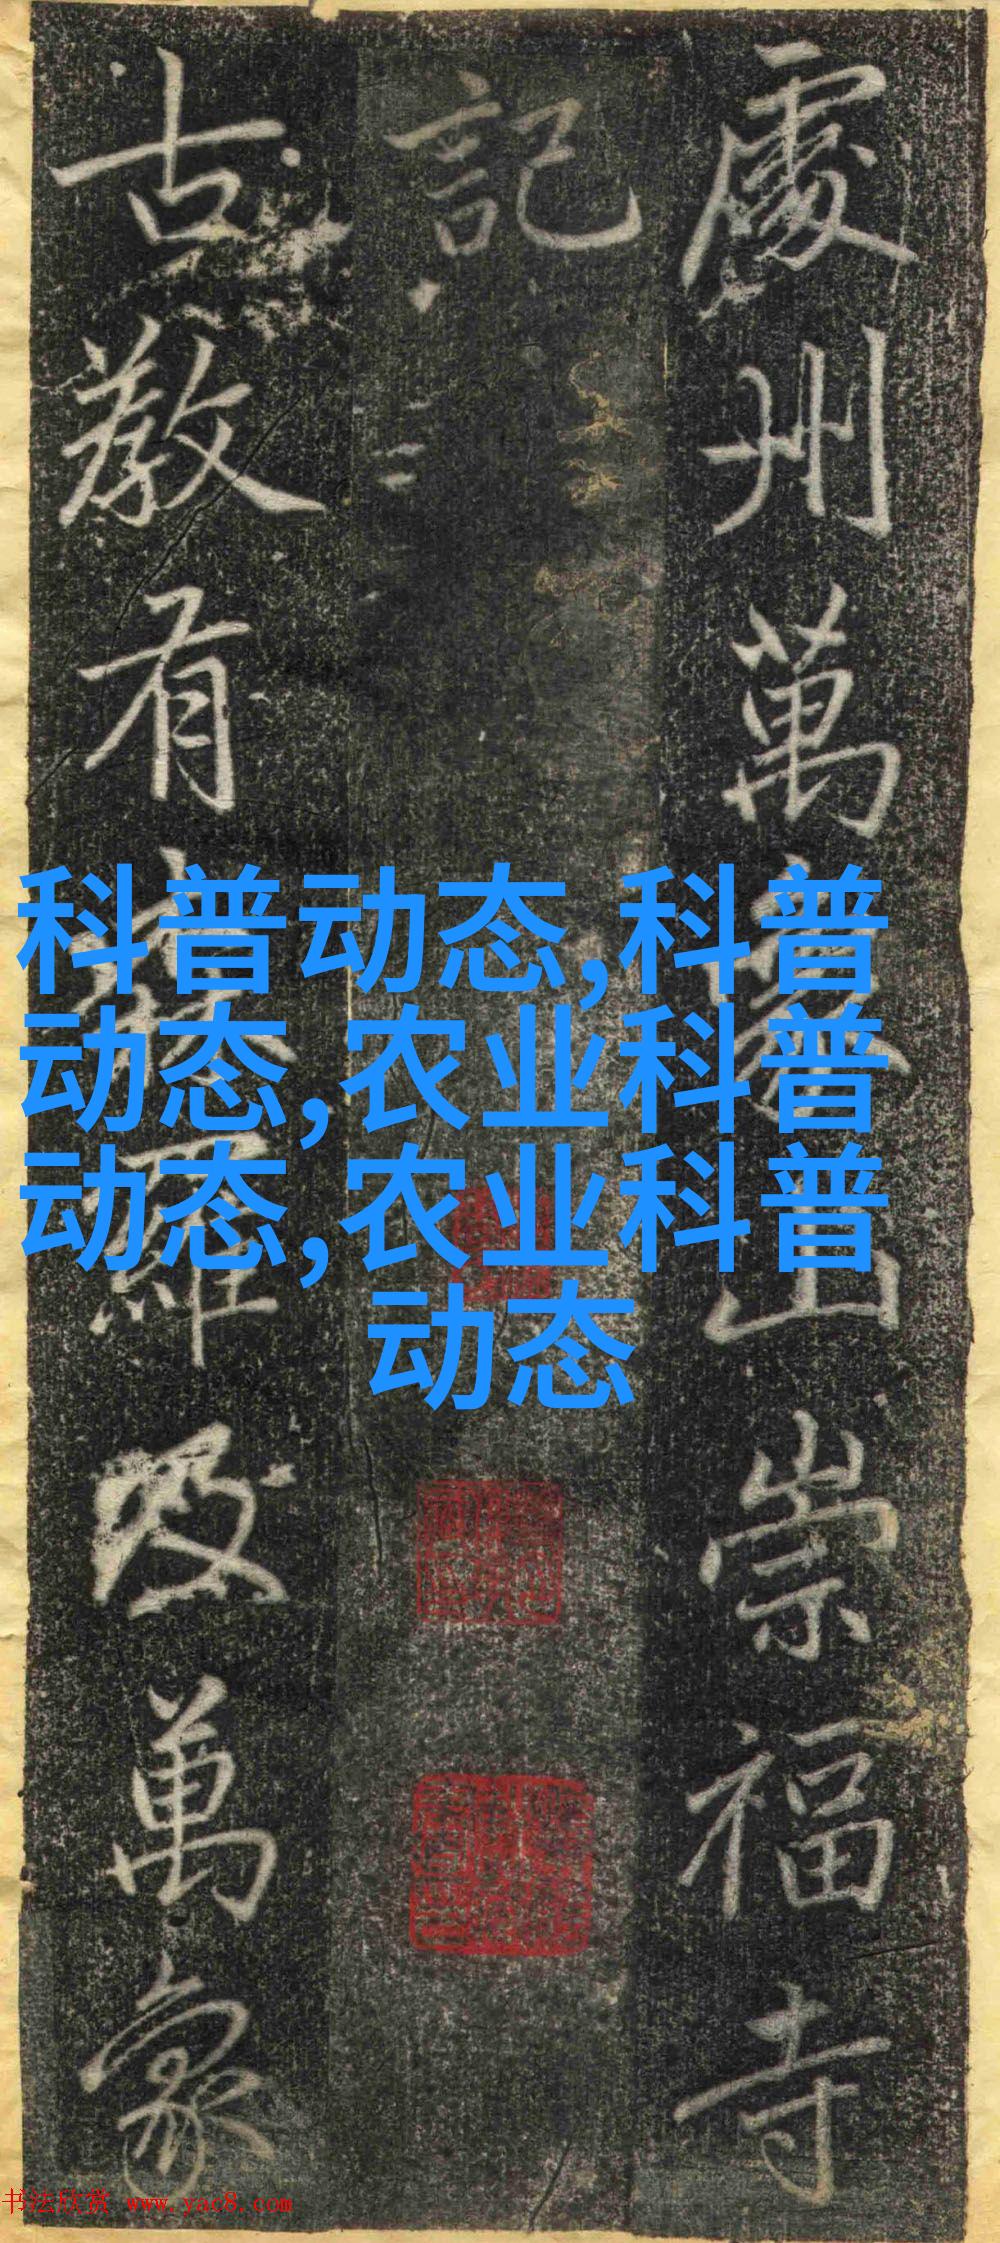 處州萬象山崇福寺
記
古教有森羅及萬象
科普动态,科普
动态,农业科普
动态,农业科普
动态
书法欣赏 www.yac8.com